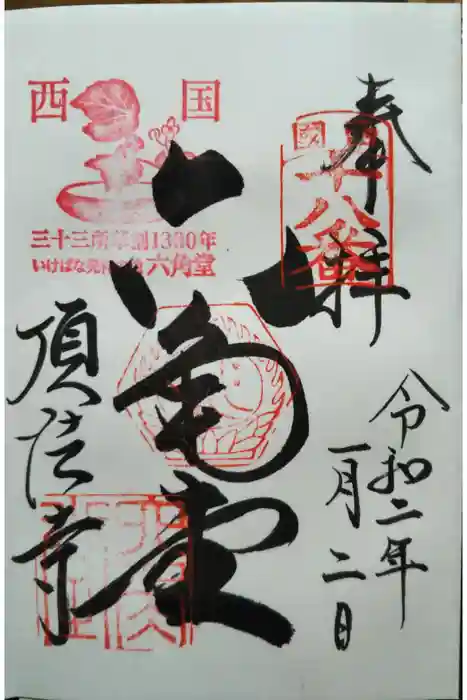 奉拝
令和二年
一月二日
國
十八番
西国
三十三所草創1300年
いけばな発祥の地 六角堂
六角堂
頂法寺